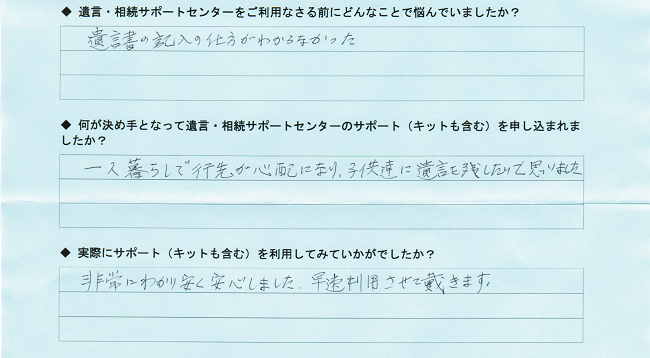 ◆ 遺言・相続サポートセンターをご利用なさる前にどんなことで悩んでいましたか？
遺言書の記入の仕方がわからなかった
◆ 何が決め手となって遺言・相続サポートセンターのサポート（キットも含む）を申し込まれま
したか？
一人暮らしで行先が心配になり、子供達に遺言を残したいと思いました
◆ 実際にサポート（キットも含む）を利用してみていかがでしたか？
非常にわかり安く安心しました、早速利用させて戴きます。